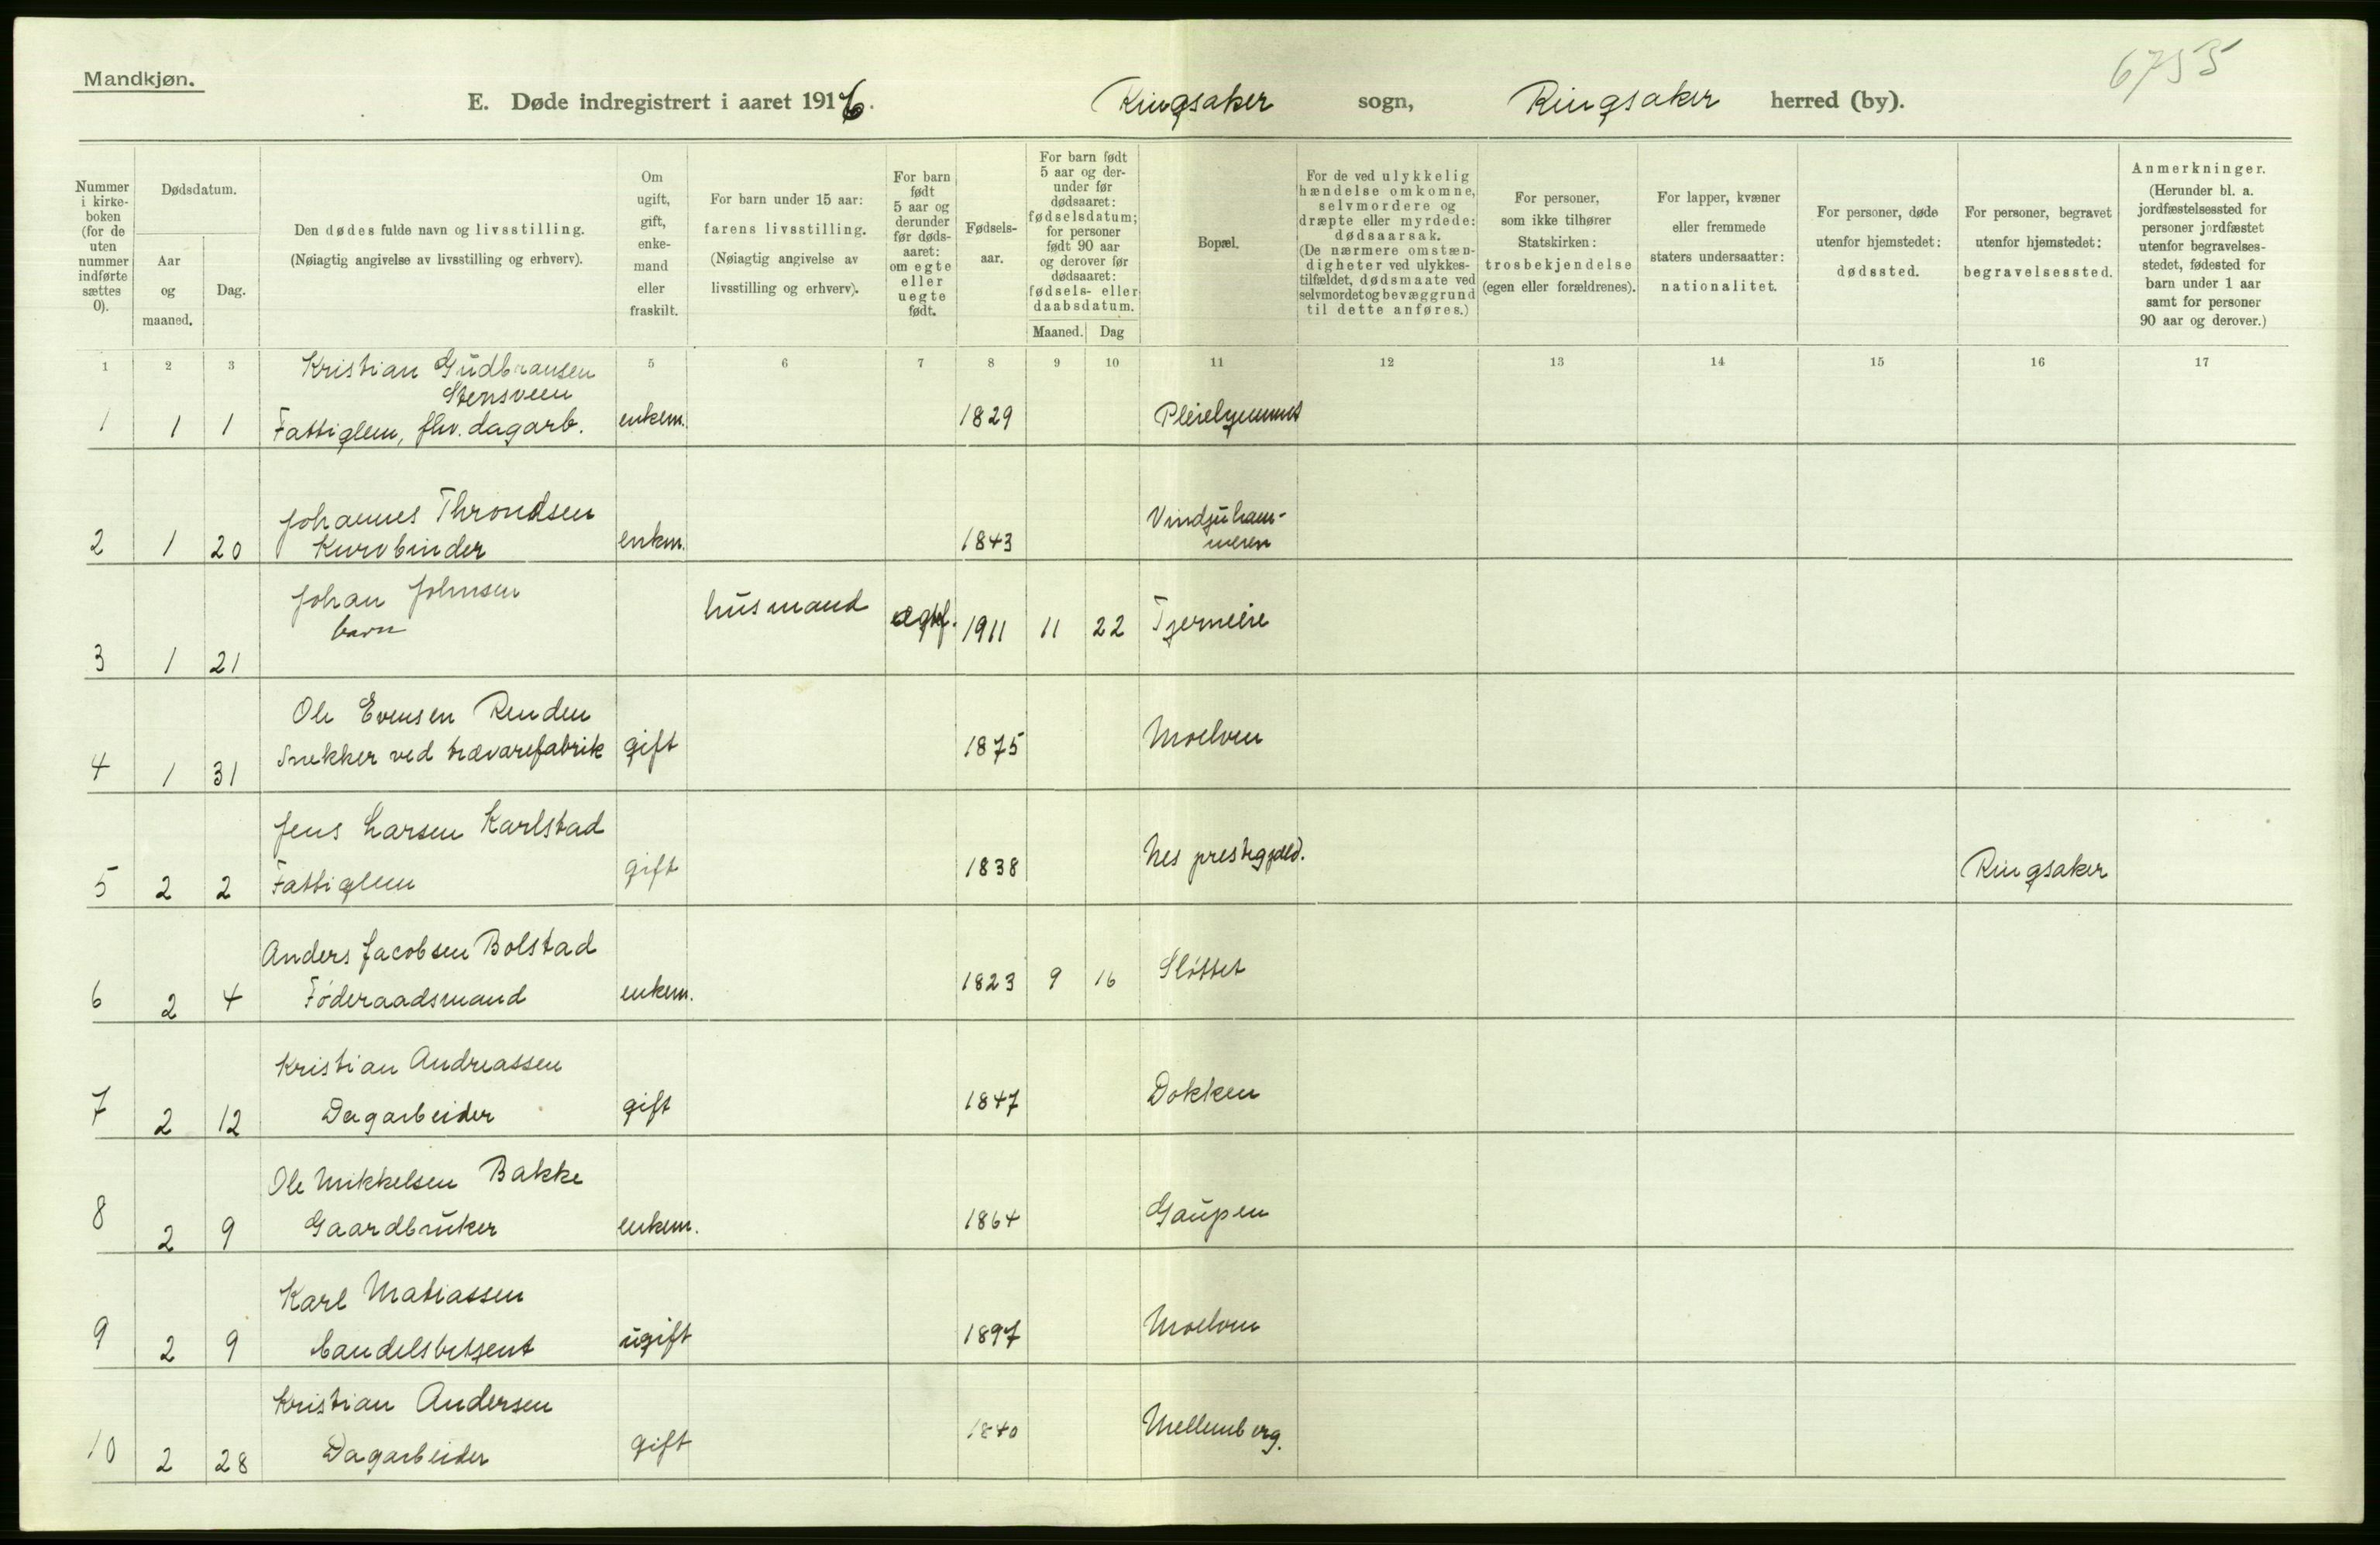 6755
Mandkjøn.
E. Døde indregistrert i aaret 1916. Ringsaker sogn, Ringsaker herred (by).
Nummer i kirke-boken (for de uten nummer indførte sættes 0).
Dødsdatum.
Aar og maaned.
Dag.
Den dødes fulde navn og livsstilling.
(Nøiagtig angivelse av livsstilling og erhverv).
Om ugift, gift, enke-mand eller fraskilt.
For barn under 15 aar: farens livsstilling.
(Nøiagtig angivelse av livsstilling og erhverv).
For barn født 5 aar og derunder før døds-aaret: om egte eller uegte født.
Fødsels-aar.
For barn født 5 aar og der-under før dødsaaret: fødselsdatum; for personer født 90 aar og derover før dødsaaret: fødsels- eller daabsdatum.
Maaned. Dag
Bopæl.
For de ved ulykkelig hændelse omkomne, selvmordere og dræpte eller myrdede: dødsaarsak.
(De nærmere omstæn-digheter ved ulykkes-tilfældet, dødsmaate ved selvmordet og bevæggrund til dette anføres.)
For personer, som ikke tilhører Statskirken: trosbekjendelse (egen eller forældrenes).
For lapper, kvæner eller fremmede staters undersaatter: nationalitet.
For personer, døde utenfor hjemstedet: dødssted.
For personer, begravet utenfor hjemstedet: begravelsessted.
Anmerkninger.
(Herunder bl. a. jordfæstelsessted for personer jordfæstet utenfor begravelses-stedet, fødested for barn under 1 aar samt for personer 90 aar og derover.)
1 2 3 5 6 7 8 9 10 11 12 13 14 15 16 17
Kristian Gudbransen
Stensveen
1 1 1 Fattiglem, fhv. dagarb. enkem. 1829 Pleiehjemmet
Johannes Throndsen Vindju ham-
2 1 20 Kurvbinder enkm. 1843 meren
Johan Johnsen husmand ægtef. 1911 11 22 Tjerneire
barn
3 1 21
Ole Evensen Renden
4 1 31 Snekker ved trævarefabrik gift 1875 Moelven
Jens Larsen Karlstad
5 2 2 Fattiglem gift 1838 Nes prestegjeld. Ringsaker
Anders Jacobsen Bolstad
6 2 4 Føderaadsmand enkem. 1823 9 16 Sløttet
Kristian Andreassen
7 2 12 Dagarbeider gift 1847 Dokken
Ole Mikkelsen Bakke
8 2 9 Gaardbruker enkem. 1864 Gaupen
Karl Matiassen
9 2 9 handelsbetjent ugift 1897 Moelven
Kristian Andersen
10 2 28 Dagarbeider gift 1840 Mellemberg.